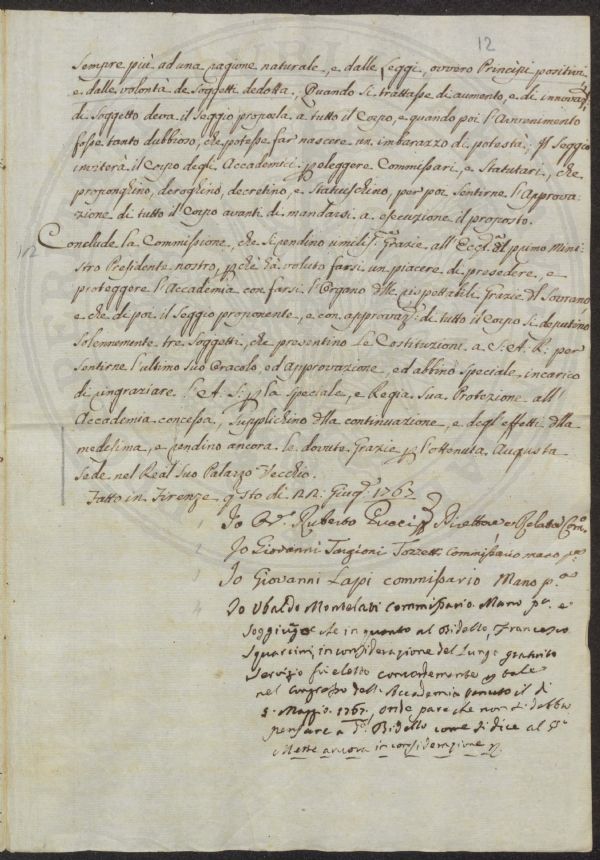 12
sempre più ad una ragione naturale, e dalle Leggi, ovvero Principj positivi,
e dalle volontà de Soggetti dedotta. Quando si trattasse di aumento, e di innovaz:
di Soggetto dovrà il Seggio proporla a tutto il Corpo, e quando poi l'Avvenimento
fosse tanto dubbioso, che potesse far nascere un imbarazzo di potestà, Il Seggio
inviterà il Corpo degli Accademici p eleggere Commissarj, e Statutarj, che
proponghino, deroghino, decretino, e Statuischino, per poi sentirne l'Approva:
zione di tutto il Corpo avanti di mandarsi a esecuzione il proposto.
Conclude la Commissione, che si rendino umiliss. Grazie all' primo Mini:
stro Presidente nostro, p chè hà voluto farsi un piacere di presedere, e
proteggere l'Accademia con farsi l'Organo dlle rispettabili Grazie dl Sovrano,
e che di poi il Seggio proponente, e con approvaz: di tutto il Corpo si deputino
solennemente tre Soggetti, che presentino le Costituzioni a S. A. R. per
sentirne l'ultimo suo Oracolo, ed Approvazione, ed abbino speciale incarico
di ringraziare l'A. S. p la speciale, e Regia Sua Protezione all'
Accademia concessa, Supplichino dlla continuazione, e degl' effetti dlla
medesima, e rendino ancora le dovute Grazie p l'ottenuta Augusta
Sede nel Real Suo Palazzo Vecchio.
Fatto in Firenze q sto dì 22. Giug. 1767.
1 Io Ruberto Pucci Direttore e Relator
2 Io Giovanni Targioni Tozzetti Commissario mano pa
3 Io Giovanni Lapi commissario Mano p.a
4 Io Ubaldo Montelatici commissario Mano pa e
soggiungo che in quanto al Bidello, Francesco
in considerazione del lungo gratuito
servizio fu eletto concordemente p tale
nel congresso dell' Accademia tenuto il dì
Maggio 1767, onde pare che non si debba
pensare a Bidello come si dice al
Mette ancora in considerazione